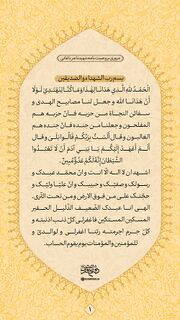 بسم رب الشهداء و الصدیقین
الحمد لله الذی هدانا لهذا وما کنا لنهتدی لولا
ان هدانا الله و جعل لنا مصابیح الهدی و
سفائن النجاة من حزبه فان حزبه هم
المفلحون وجعلنا من جنده فان جنده هم
الغالبون و قال ألست بربکم قالوا بلی وقال
ألم أعهد إلیکم یا بنی آدم أن لا تعبدوا
الشیطان إنه لکم عدو مبین.
اشهد ان لا اله الا انت و ان محمد عبدک و
رسولک و صفیک و حبیبک و ان علیا ولیک و
حجتک علی من فوق الارض ومن تحت الثری.
الهی انا عبدک الضعیف الذلیل الحقیر
المسکین المستکین فاغفرلی کل ذنب اذنبته و
کل جرم اجرمته ربنا اغفرلی و لوالدی و
للمؤمنین والمؤمنات یوم یقوم الحساب.
۱